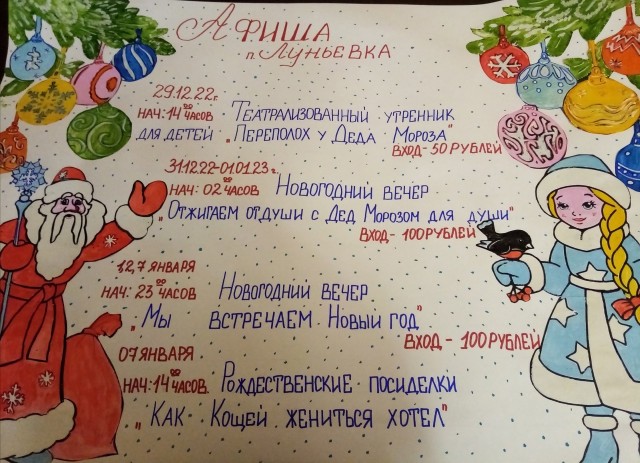 Афиша
п. Луньевка
29.12.22г.
нач: 14 00 часов Театрализованный утренник
для детей „Переполох у Деда Мороза"
вход - 50 рублей
31.12.22-01.01.23г.
нач: 02 00 часов Новогодний вечер
„Отжигаем от души с Дед Морозом для души"
вход - 100 рублей
1,2,7 января
нач: 23 00 часов Новогодний вечер
„Мы встречаем Новый год"
вход - 100 рублей
07 января
нач: 14 00 часов. Рождественские посиделки
„Как Кощей жениться хотел"